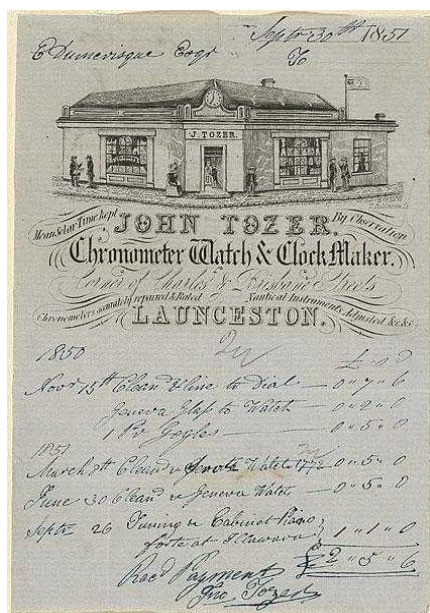 Septr 30th 1851
E Dumeresque Esqr
To
J. TOZER.
Mean Solar Time kept
By Observation
JOHN TOZER.
Chronometer Watch & Clock Maker.
Corner of Charles & Brisbane Streets
Chronometers accurately repaired & Rated
Nautical Instruments Adjusted &c &c
LAUNCESTON.
1850
£ s d
Novr 15th Clean & line to Dial — 0 " 7 " 6
Geneva Glass to Watch — 0 " 2 " 0
1 Pr Gogles — 0 " 5 " 0
1851
March 8th Clean'd a Watch 0 " 5 " 0
June 30 Clean'd a Geneva Watch 0 " 5 " 0
Septr 26 Tuning a Cabinet Piano
forte at Illawara 1 " 1 " 0
£ 2 " 5 " 6
Recd Payment
Jno Tozer